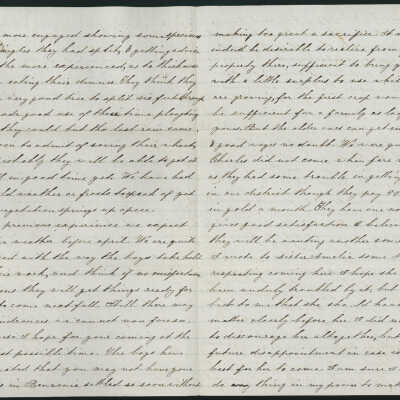 more engaged showing some
they had split, & getting advice
the more experienced, as to thickness
eating their dinners. They think they
very good time to split six feet
made good use of their time plowing
they could but the last rain came
soon to admit of sowing their wheat
probably they will be able to get it
in good time yet. We have had
cold weather or frosts to speak of yet
vegetation springs up apace.
previous experience we expect
weather before april. We are quite
pleased with the way the boys take hold
work, and think if no misfortune
they will get things ready for
to come next fall. Still there may
hindrances we cannot now foresee
I hope for your coming at the
possible time. The boys have
stated that you may not have gone
in Benicia settled so soon without
making too great a sacrifice. It
indeed be desirable to realize from
property there, sufficient to bring
with a little surplus to use while
are growing, for the first crop
be sufficient for a family as large
yours. But the older ones can get
& good wages no doubt. We were
Charles did not come when fare
as they had some trouble in getting
in our district though they pay 50
in gold a month. They have one now
gives good satisfaction. I believe
they will be wanting another
I wrote to sister Amelia some
respecting coming here. I hope she
been unduly troubled by it, but
best to me that she should have
matter closely before her. I did
to discourage her altogether, but
future disappointment in case
best for her to come. I am sure I
do any thing in my power to make